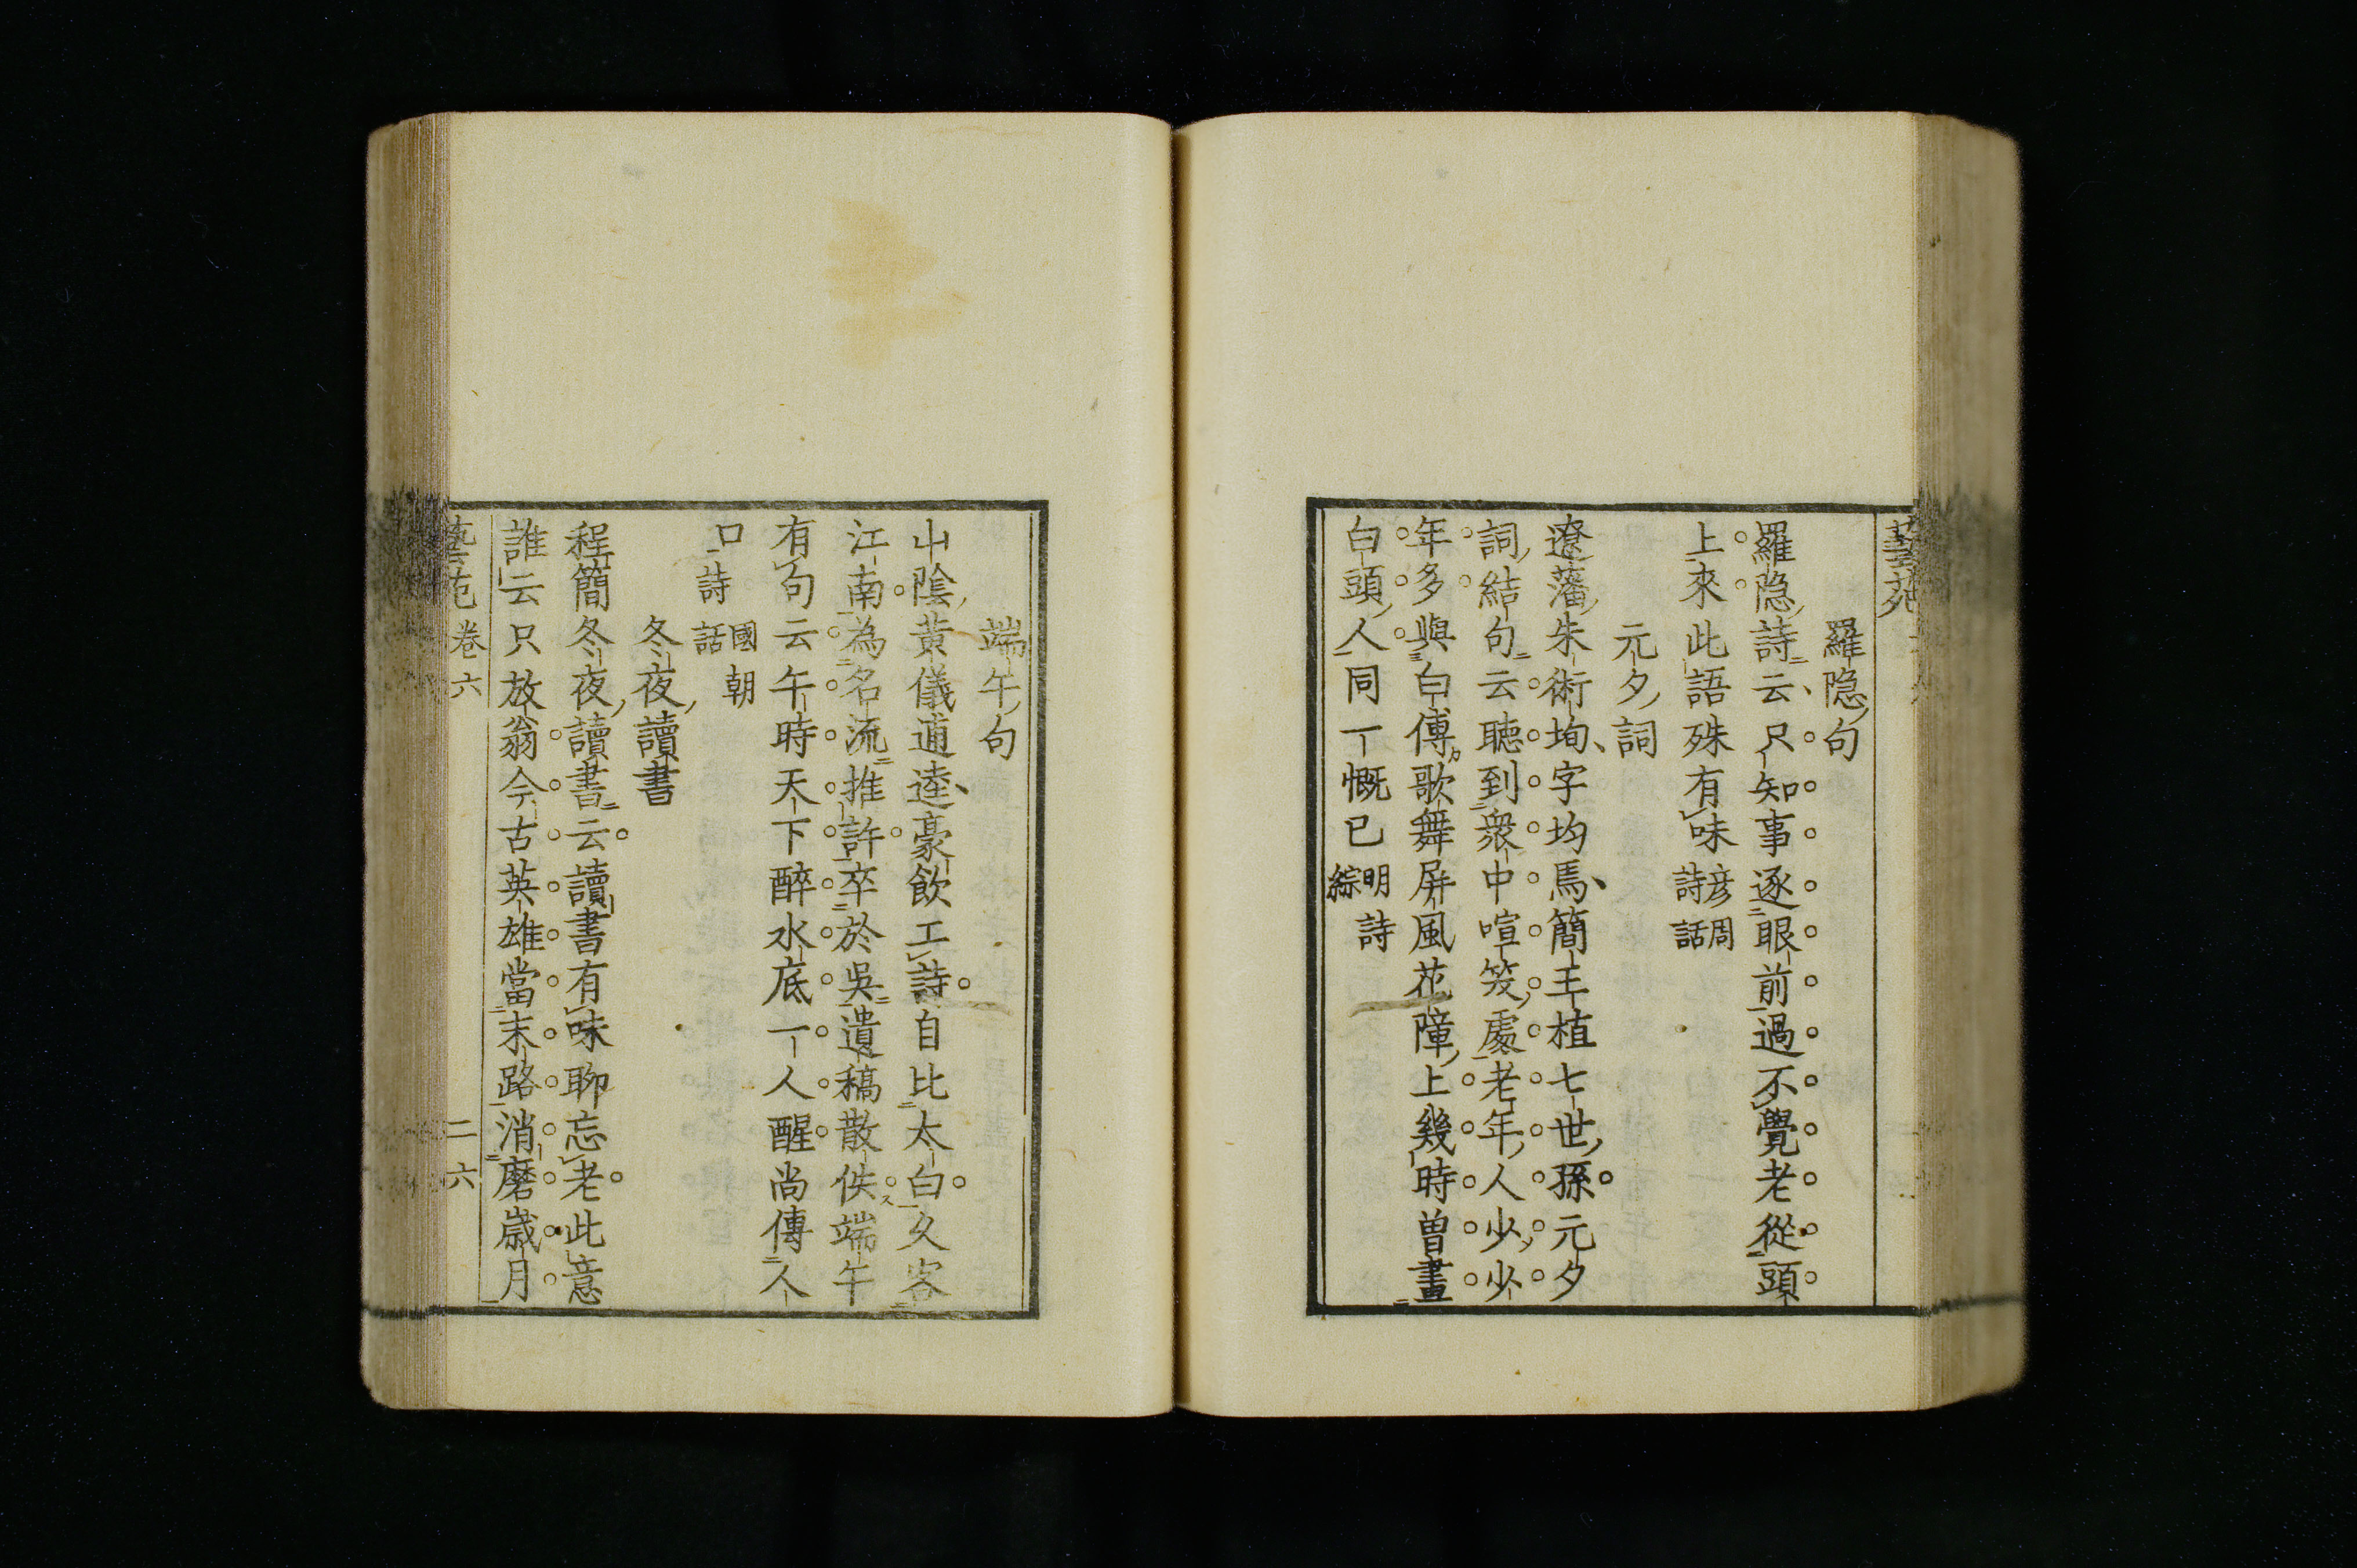 羅隐句
羅隐詩云只知事逐眼前過不覺老從頭
上來此語殊有味彦周詩話
元夕詞
遼藩朱術㘦字均焉簡王植七世孫元夕
詞結句云聽到衆中喧笑處老年人少少
年多與白傅歌舞屏風花障上幾時曽畫
白頭人同一慨已明詩綜
端午句
山陰黃儀逌逵豪飲工詩自比太白久客
江南為名流推許卒於吳遺稿散佚端午
有句云午時天下醉水底一人醒尚傳人
口國朝詩話
冬夜讀書
程簡冬夜讀書云讀書有味聊忘老此意
誰云只放翁今古英雄當末路消磨歳月
藝苑
卷六
二六